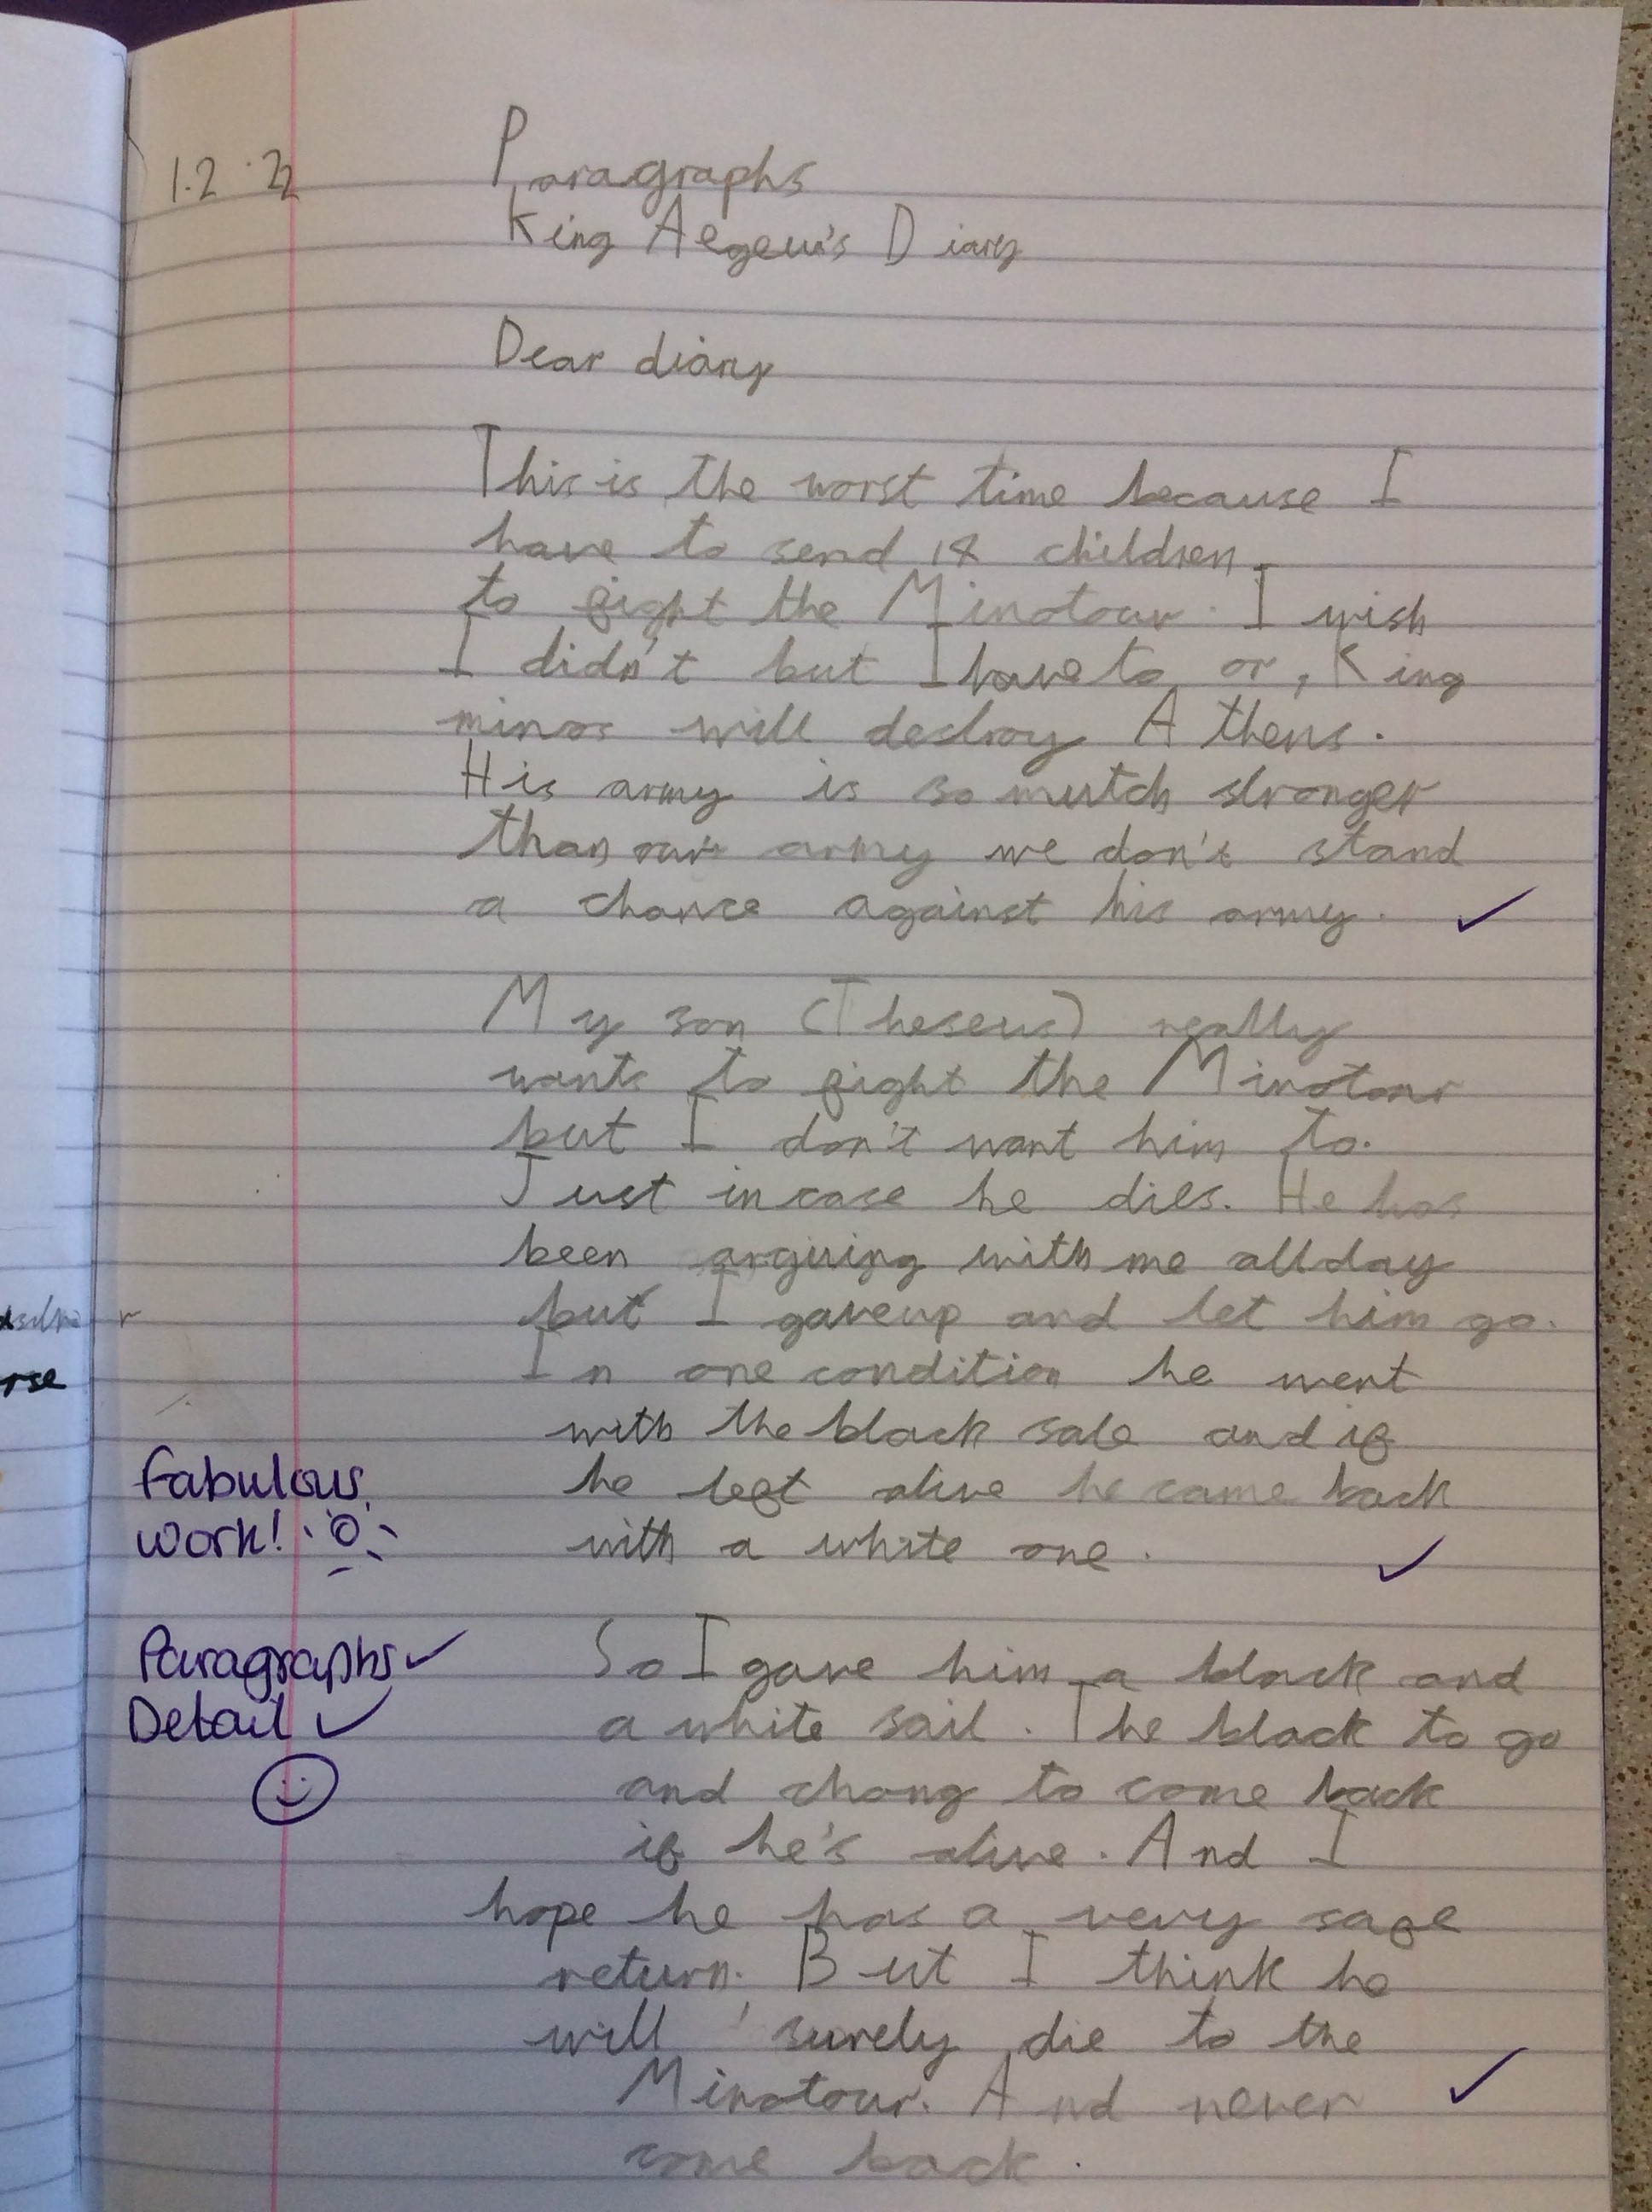 1.2.22
Paragraphs
King Aegeus's Diary
Dear diary
This is the worst time because I
have to send 14 children
to fight the Minotour. I wish
I didn't but I have to or, King
minos will destroy Athens.
His army is so mutch stronger
than our army we don't stand
a chance against his army.
My son (Theseus) really
wants to fight the Minotour
but I don't want him to.
Just in case he dies. He has
been arguing with me all day
but I gave up and let him go.
In one condition he went
with the black sale and if
he left alive he came back
with a white one.
So I gave him a black and
a white sail. The black to go
and chang to come back
if he's alive. And I
hope he has a very safe
return. But I think he
will surely die to the
Minotour. And never
come back.
rse
Fabulous
work!
Paragraphs ✓
Detail ✓